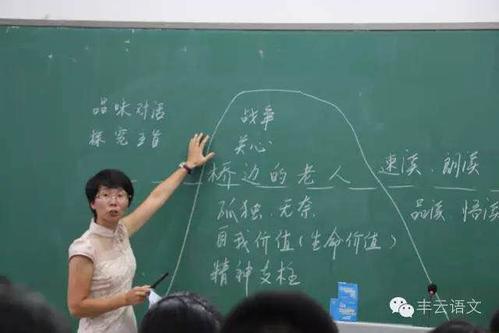 品味对话
探究主旨
战争
关心
桥边的老人
速读、朗读
品读、悟读
孤独、无奈
自我价值(生命价值)
精神支柱
丰云语文